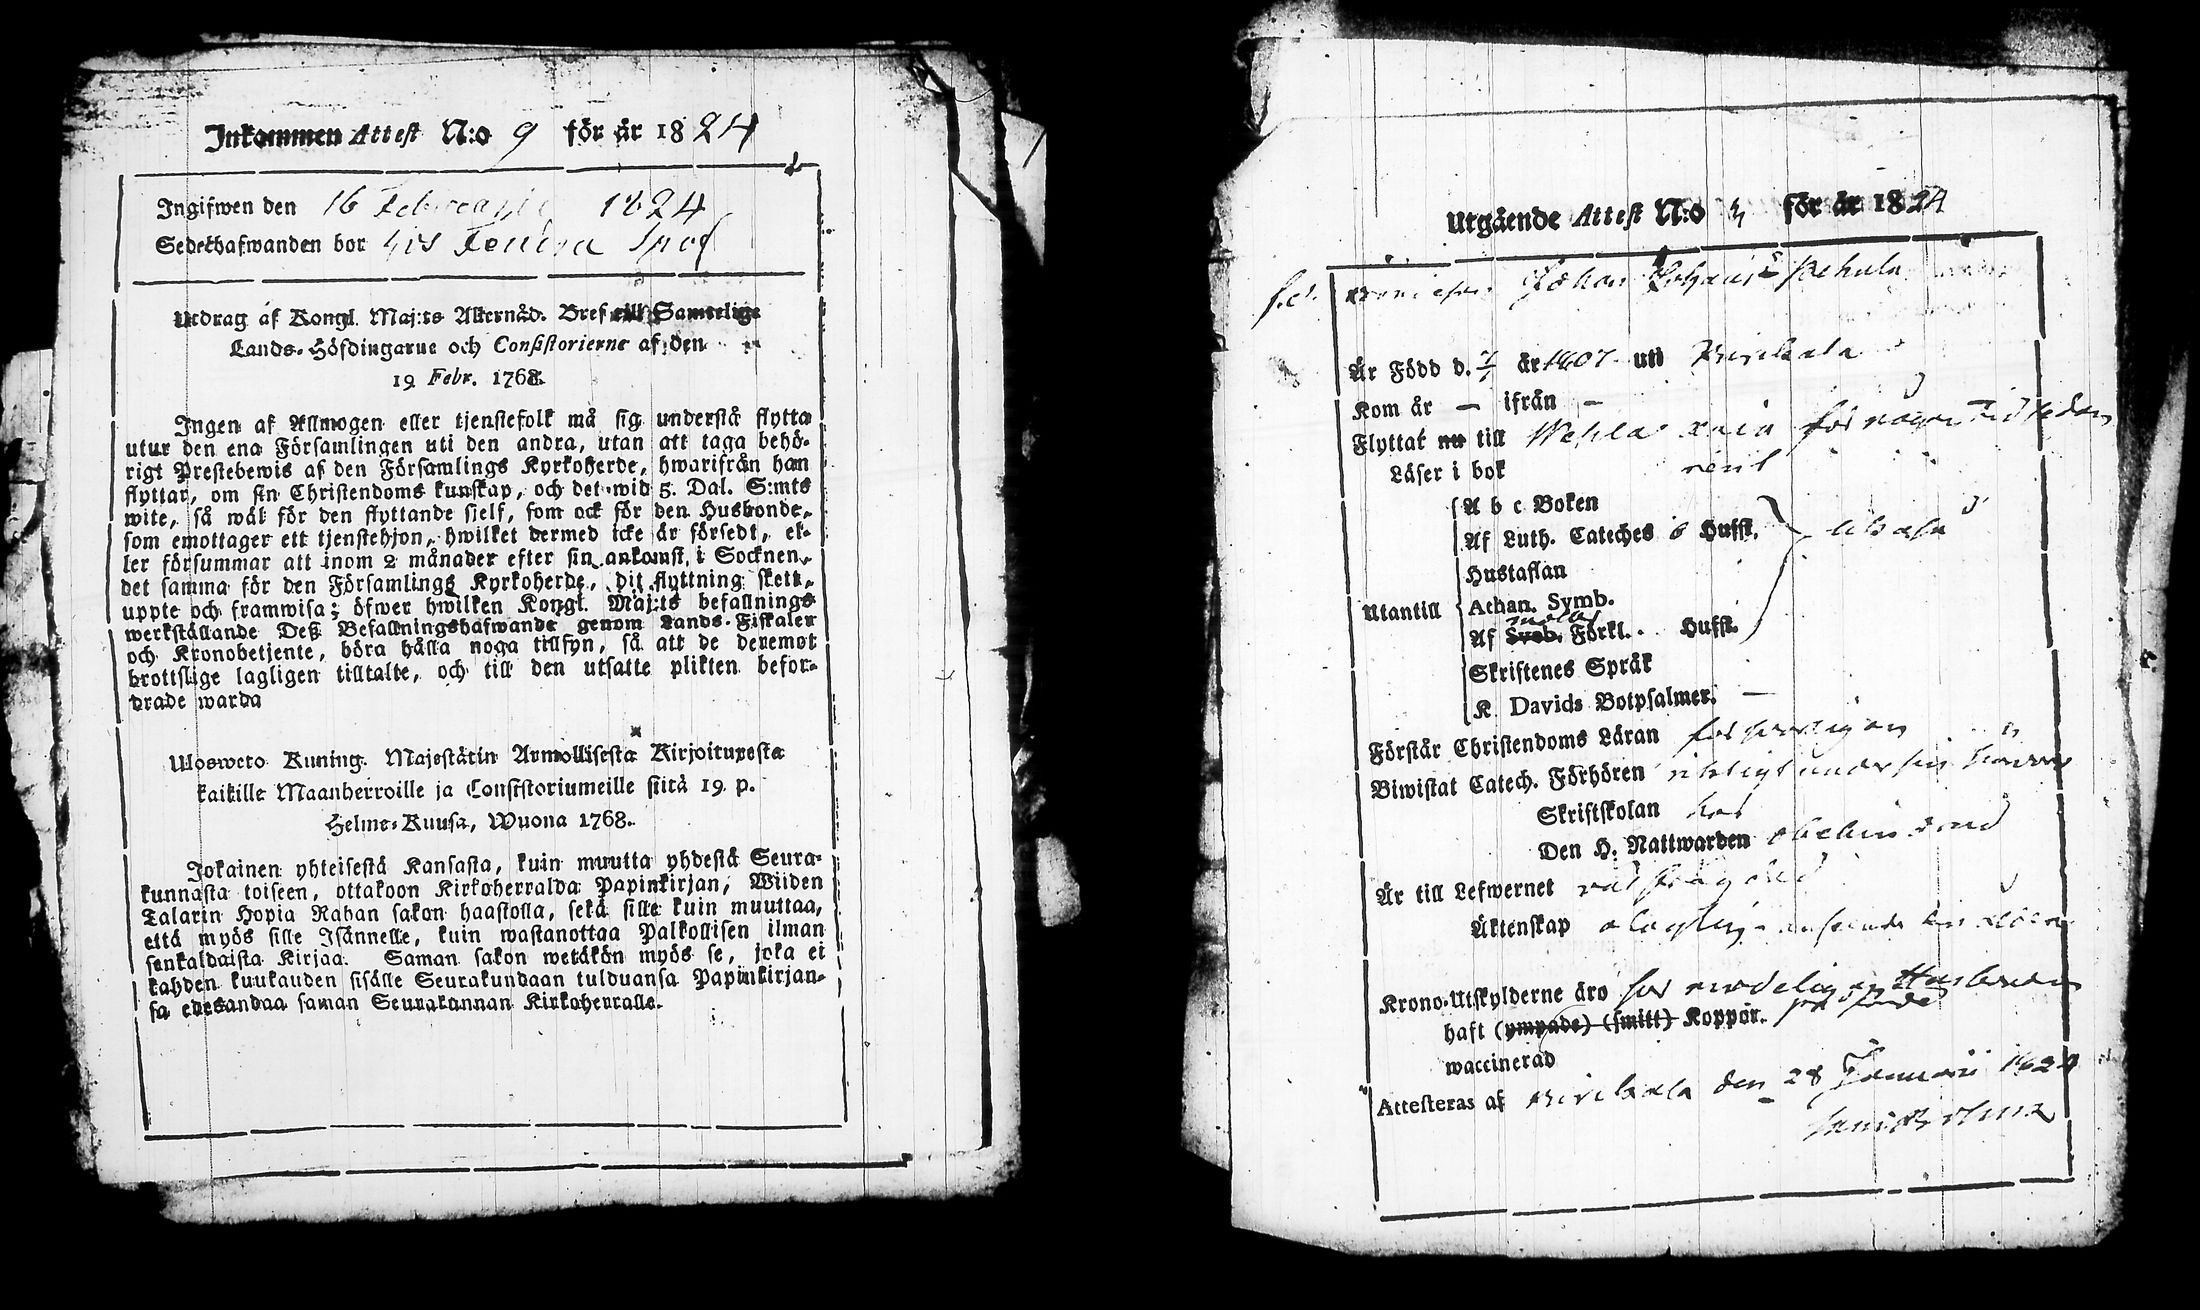 Inkommen Attest N:o 9 för år 1824
Ingifwen den 16 Februarii 1824
Sedelhafwanden bor hos
Utdrag af Kongl. Maj:ts Allernåd. Bref till Samtelige
Lands-Höfdingarne och Consistorierne af den
19 Febr. 1768.
Ingen af Allmogen eller tjenstefolk må sig understå flytta
utur den ena Församlingen uti den andra, utan att taga behö-
rigt Prestebewis af den Församlings Kyrkoherde, hwarifrån han
flyttar, om sin Christendoms kunskap, och det wid 5. Dal. S:mts
wite, så wäl för den flyttande sjelf, som ock för den Husbonde,
som emottager ett tjenstehjon, hwilket dermed icke är försedt, el-
ler försummar att inom 2 månader efter sin ankomst i Socknen,
det samma för den Församlings Kyrkoherde, dit flyttning skett,
uppte och framwisa; öfwer hwilken Kongl. Maj:ts befallnings
werkställande Deß Befallningshafwande genom Lands-Fiskaler
och Kronobetjente, böra hålla noga tillsyn, så att de deremot
brottslige lagligen tilltalte, och till den utsatte plikten befor-
drade warda
Ulosweto Kuning. Majestätin Armollisesta Kirjoituxesta
kaikille Maanherroille ja Consistoriumeille siitä 19. p.
Helme-Kuusa, Wuona 1768.
Jokainen yhteisestä Kansasta, kuin muutta yhdestä Seura-
kunnasta toiseen, ottakoon Kirkoherralda Papinkirjan, Wiiden
Talarin Hopia Rahan sakon haastolla, sekä sille kuin muuttaa,
että myös sille Isännelle, kuin wastanottaa Palkollisen ilman
senkaldaista Kirjaa. Saman sakon wetäkön myös se, joka ei
kahden kuukauden sisälle Seurakundaan tulduansa Papinkirjan-
sa edesandaa saman Seurakunnan Kirkoherralle.
Utgående Attest N:o 3 för år 1824
Johan Johanss Pehula
Är Född d. 7/1 år 1807 uti Birckala
Kom år — ifrån —
Flyttat nu till för någon tid sedan
Läser i bok rent
Utantill
A b c Boken
Af Luth. Cateches 6 Hufst.
Hustaflan
Athan. Symb.
Af Sveb. Förkl. Hufst.
Skriftenes Språk
K. Davids Botpsalmer. —
Förstår Christendoms Läran försvarligen
Biwistat Catech. Förhören
Skriftskolan
Den H. Nattwarden obehindrad
Är till Lefwernet
Äktenskap
Krono-Utskylderne äro
haft (ympade) (smitt) Koppor.
waccinerad
Attesteras af Birckala den 28 Januarii 1824